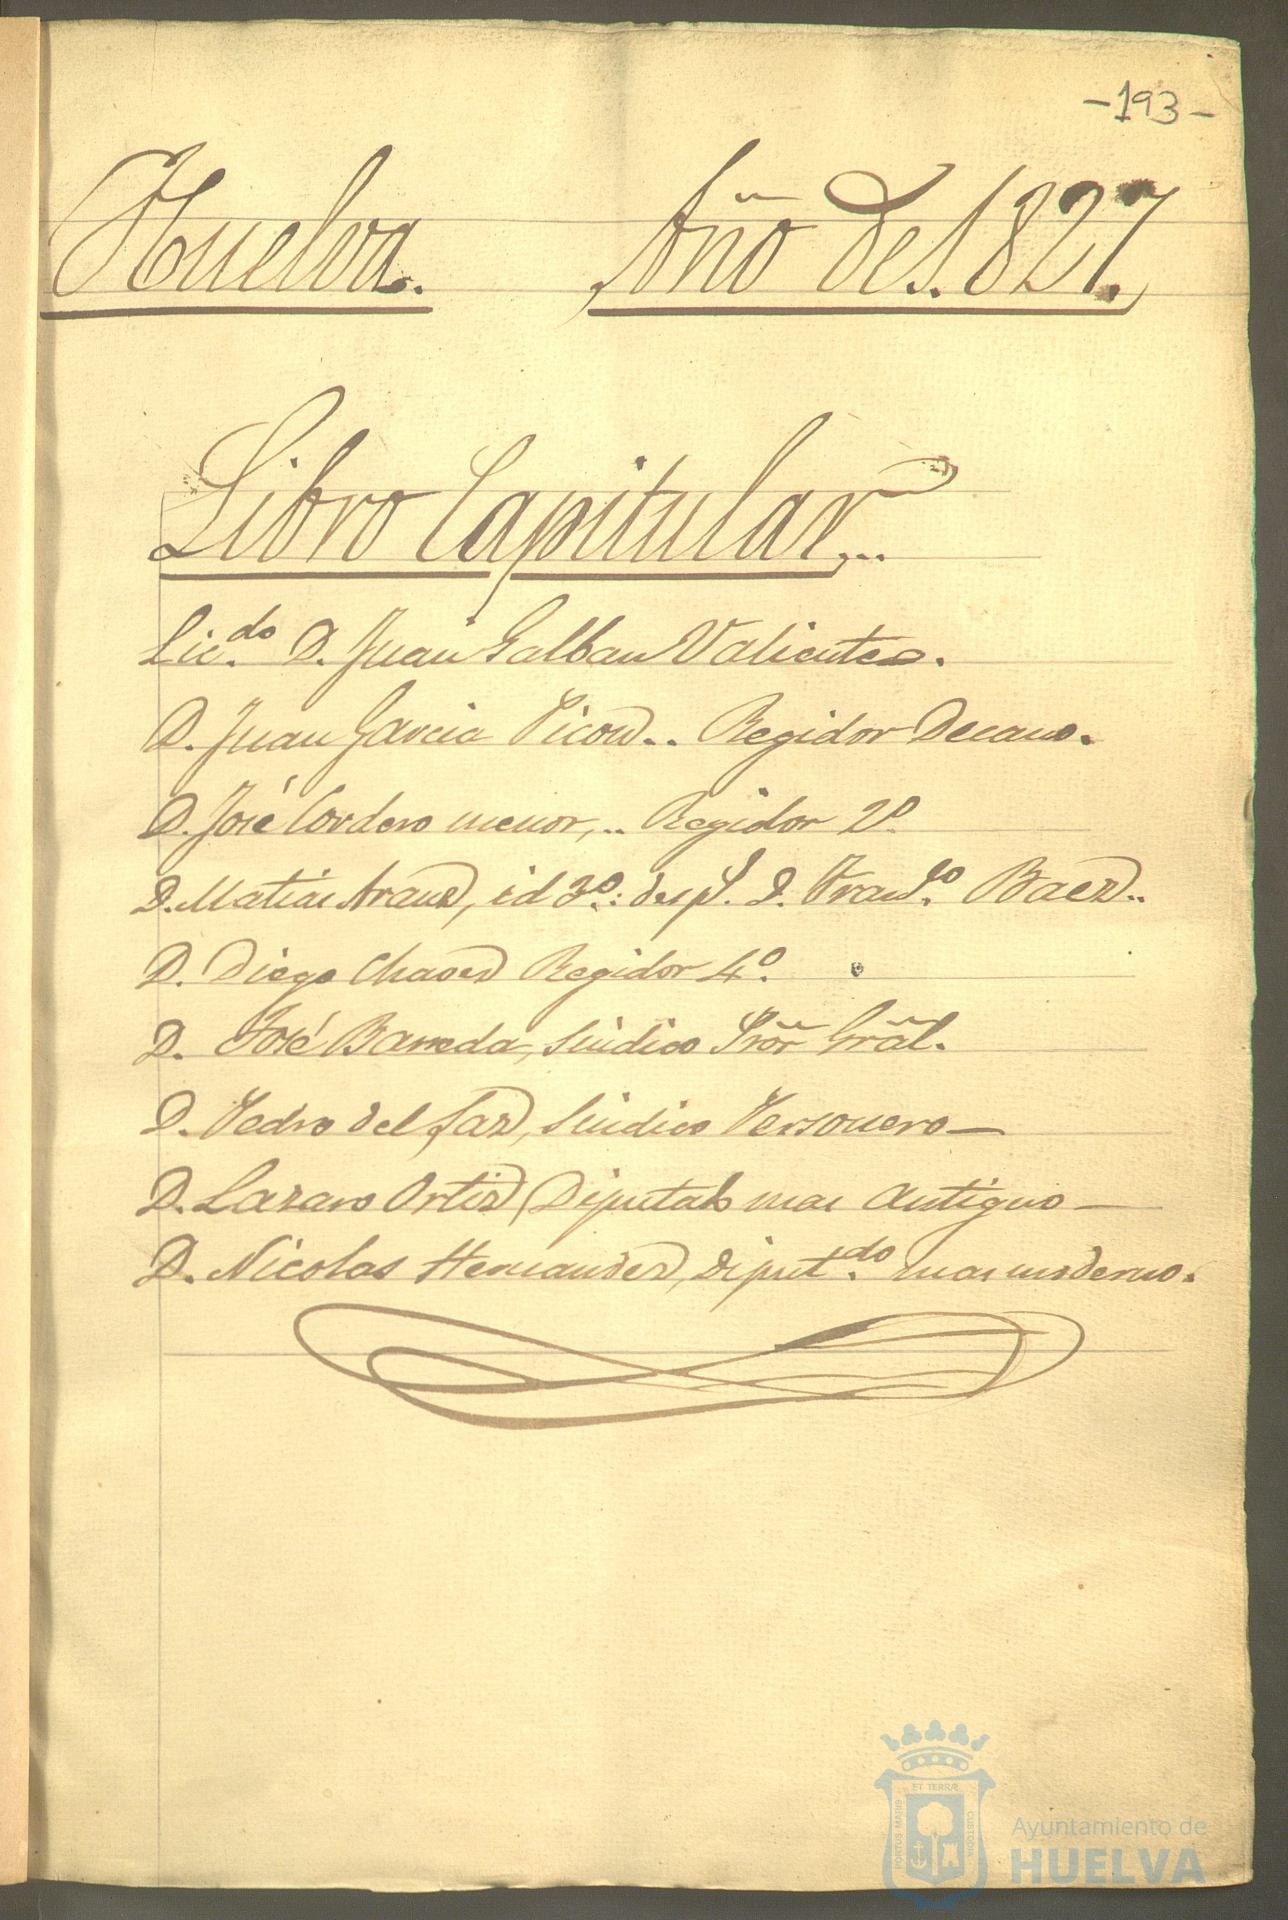 -193-
Huelva. Año de 1827.
Libro Capitular...
Lic.do D. Juan Galban Valiente.
D. Juan Garcia Picon.. Regidor Decano.
D. José Cordero menor,.. Regidor 2º
D. Matias Arauz, id 3º: desp. D. Franco. Baez..
D. Diego Chavez Regidor 4º.
D. José Barreda, Sindico Pror Gral.
D. Pedro del Paz, Sindico Personero—
D. Lazaro Ortiz, Diputado mas antiguo—
D. Nicolas Hernandez, Diput.do mas moderno.
ET TERRÆ
PORTUS MARIS
CUSTODIA
Ayuntamiento de
HUELVA